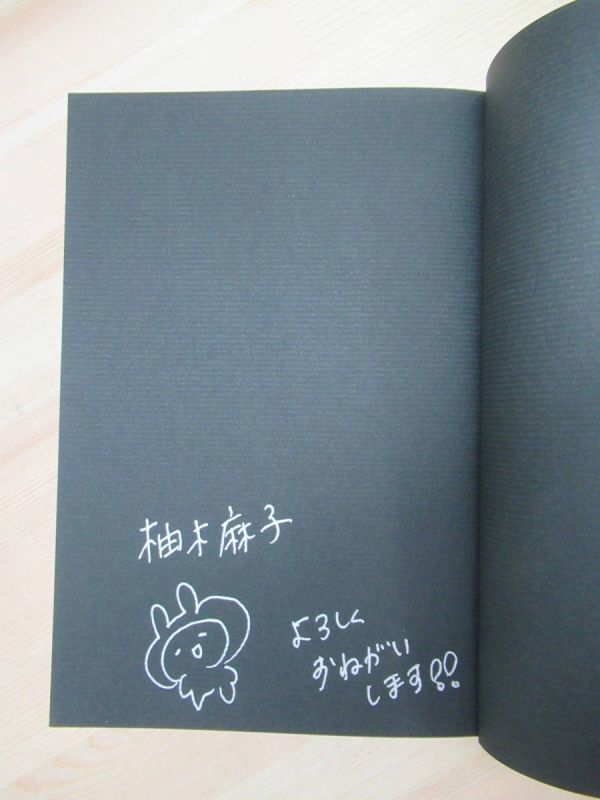 柚木麻子
よろしく
おねがい
します!!